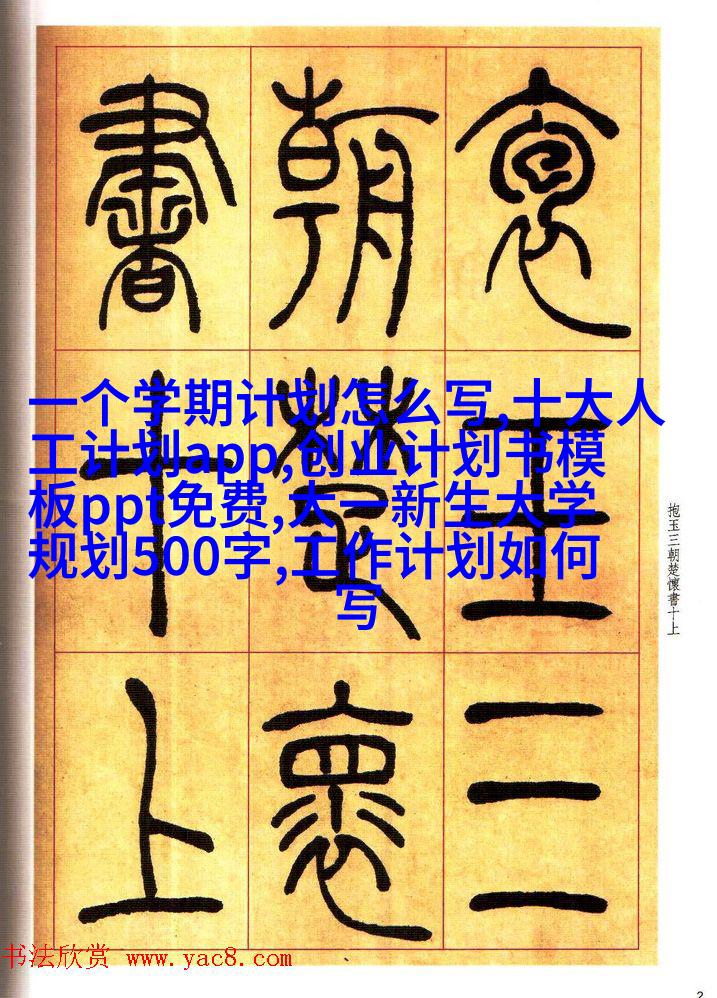 袌玉三
朝楚褱
書十上
一个学期计划怎么写,十大人
工计划app,创业计划书模
板ppt免费,大一新生大学
规划500字,工作计划如何
写
抱玉三朝楚懷書十上
书法欣赏 www.yac8.com
2